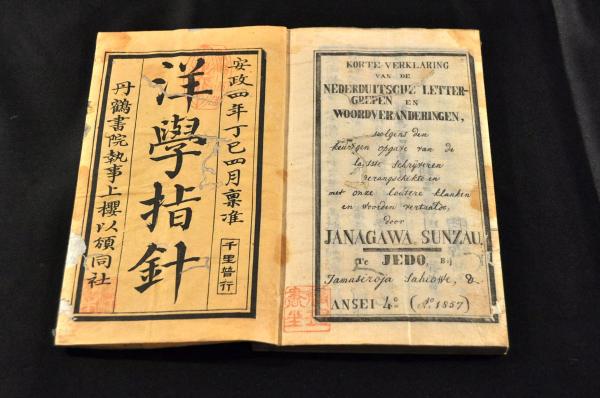 安政四年丁巳四月稟准
千里笞行
洋學指針
丹鶴書院執事上櫻以頒同社
KORTE VERKLARING
VAN DE
NEDERDUITSCHE LETTER-
GREPEN EN
WOORDVERANDERINGEN,
volgens den
keurigen opgave van de
beste Schrijveren
gerangschikt en
met onze loutere klanken
en woorden vertaald,
door
JANAGAWA SUNZAU.
Te JEDO, Bij
Jamasiroja Saheowe, &.
ANSEI 4º (Aº. 1857)